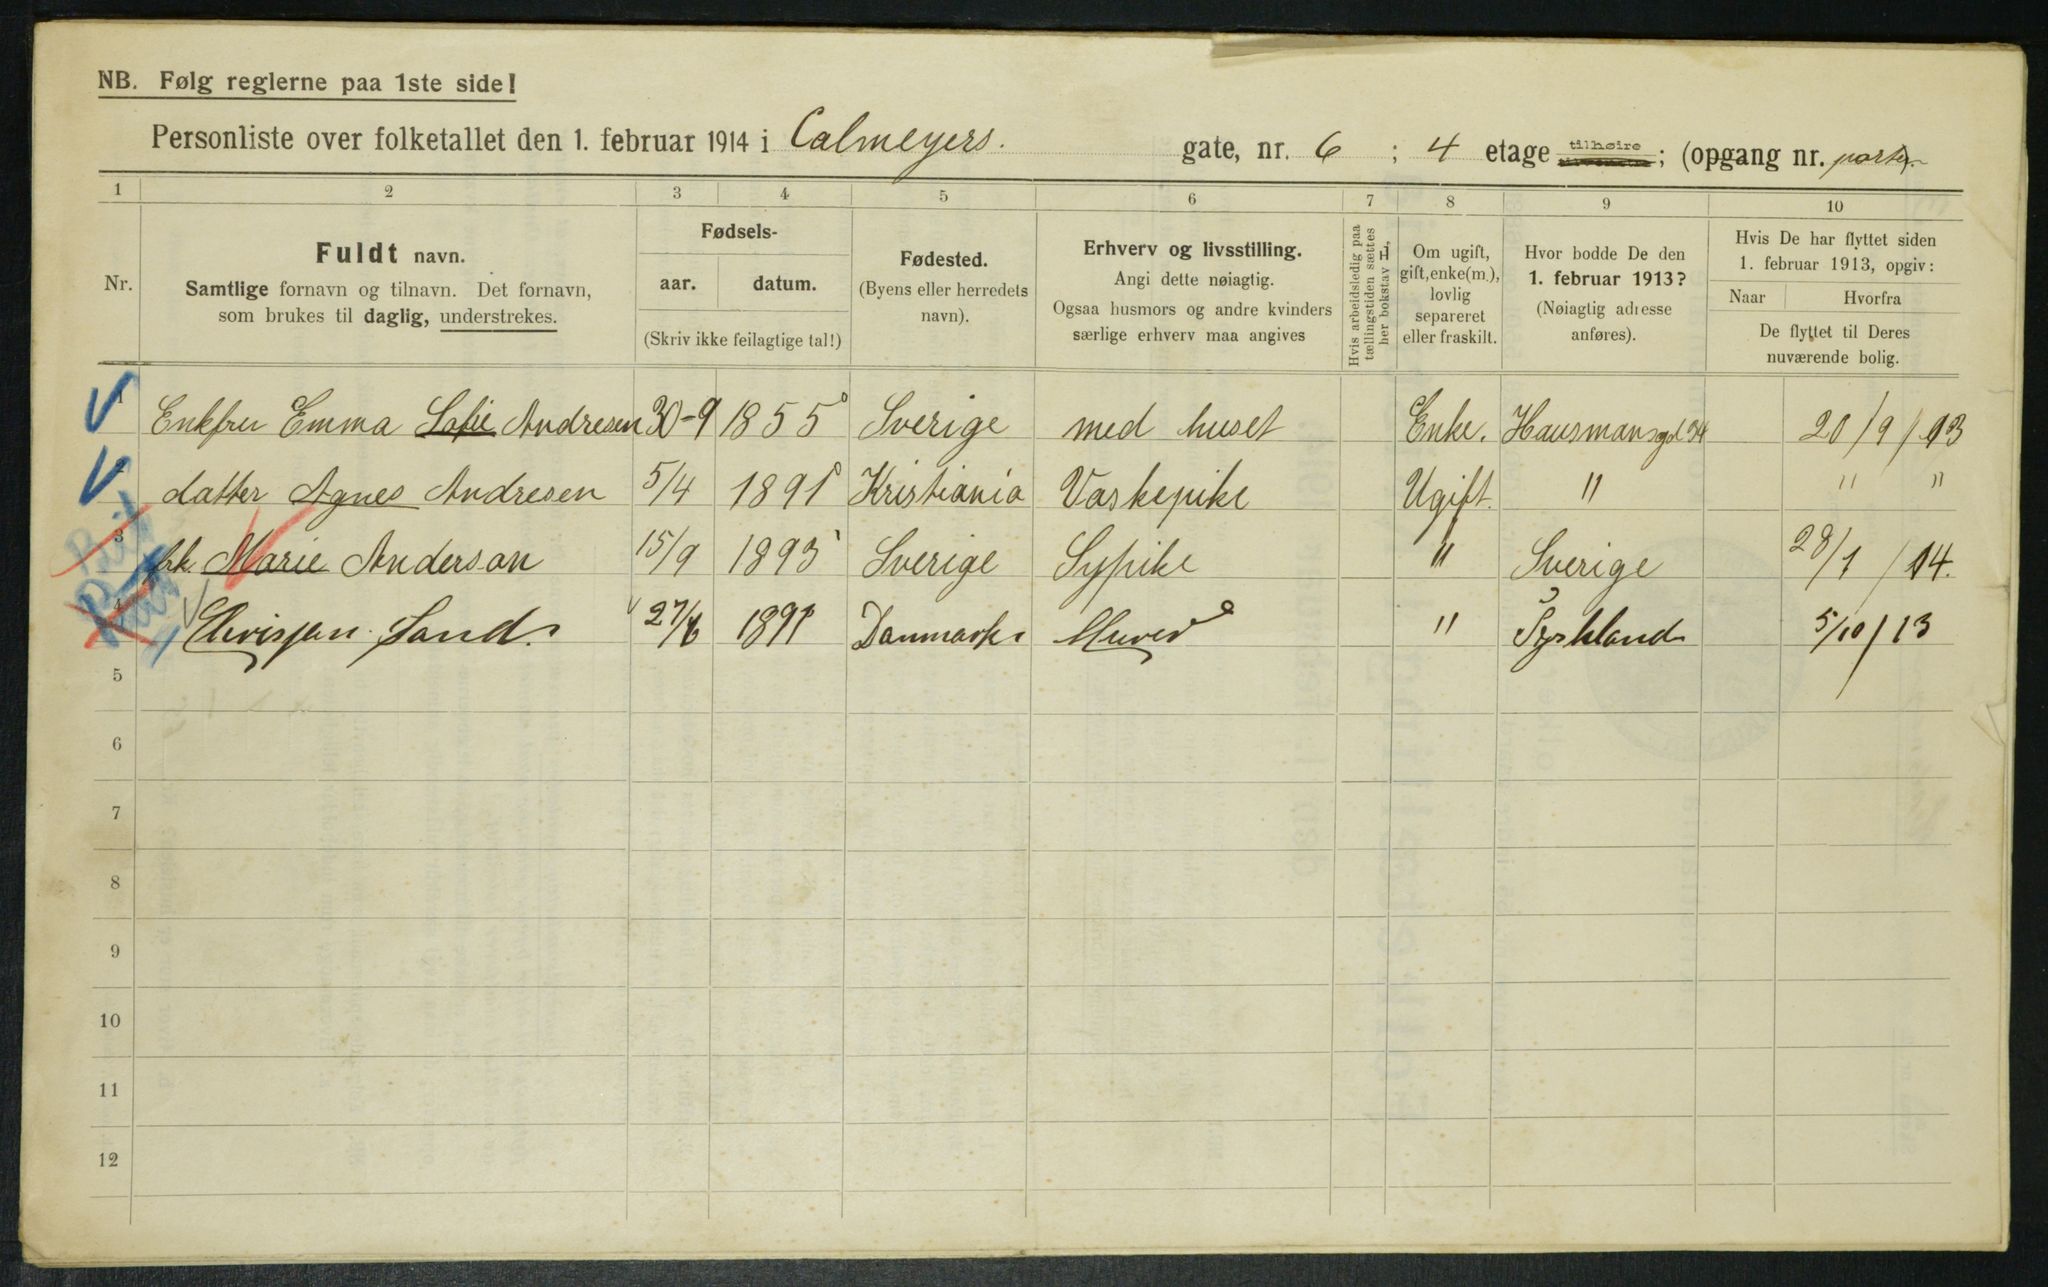 NB. Følg reglerne paa 1ste side!
Personliste over folketallet den 1. februar 1914 i Calmeyers. gate, nr. 6 ; 4 etage tilhøire ; (opgang nr.
1 2 3 4 5 6 7 8 9 10
Nr.
Fuldt navn.
Samtlige fornavn og tilnavn. Det fornavn,
som brukes til daglig, understrekes.
Fødsels-
aar. datum.
(Skriv ikke feilagtige tal!)
Fødested.
(Byens eller herredets
navn).
Erhverv og livsstilling.
Angi dette nøiagtig.
Ogsaa husmors og andre kvinders
særlige erhverv maa angives
Hvis arbeidsledig paa
tællingstiden sættes
her bokstav L.
Om ugift,
gift, enke(m.),
lovlig
separeret
eller fraskilt.
Hvor bodde De den
1. februar 1913?
(Nøiagtig adresse
anføres).
Hvis De har flyttet siden
1. februar 1913, opgiv:
Naar Hvorfra
De flyttet til Deres
nuværende bolig.
1 Enkfru Emma Sofie Andresen 30-9 1855 Sverige med huset Enke. Hausmansgd 34 20/9/13
2 datter Agnes Andresen 5/4 1891 Kristiania Vaskepike Ugift. " " "
3 frk. Marie Anderson 15/9 1893 Sverige Sypike " Sverige 28/1/14.
4 Chrisjan Sand. 27/6 1891 Danmark Murer " Tyskland 5/10/13
5
6
7
8
9
10
11
12